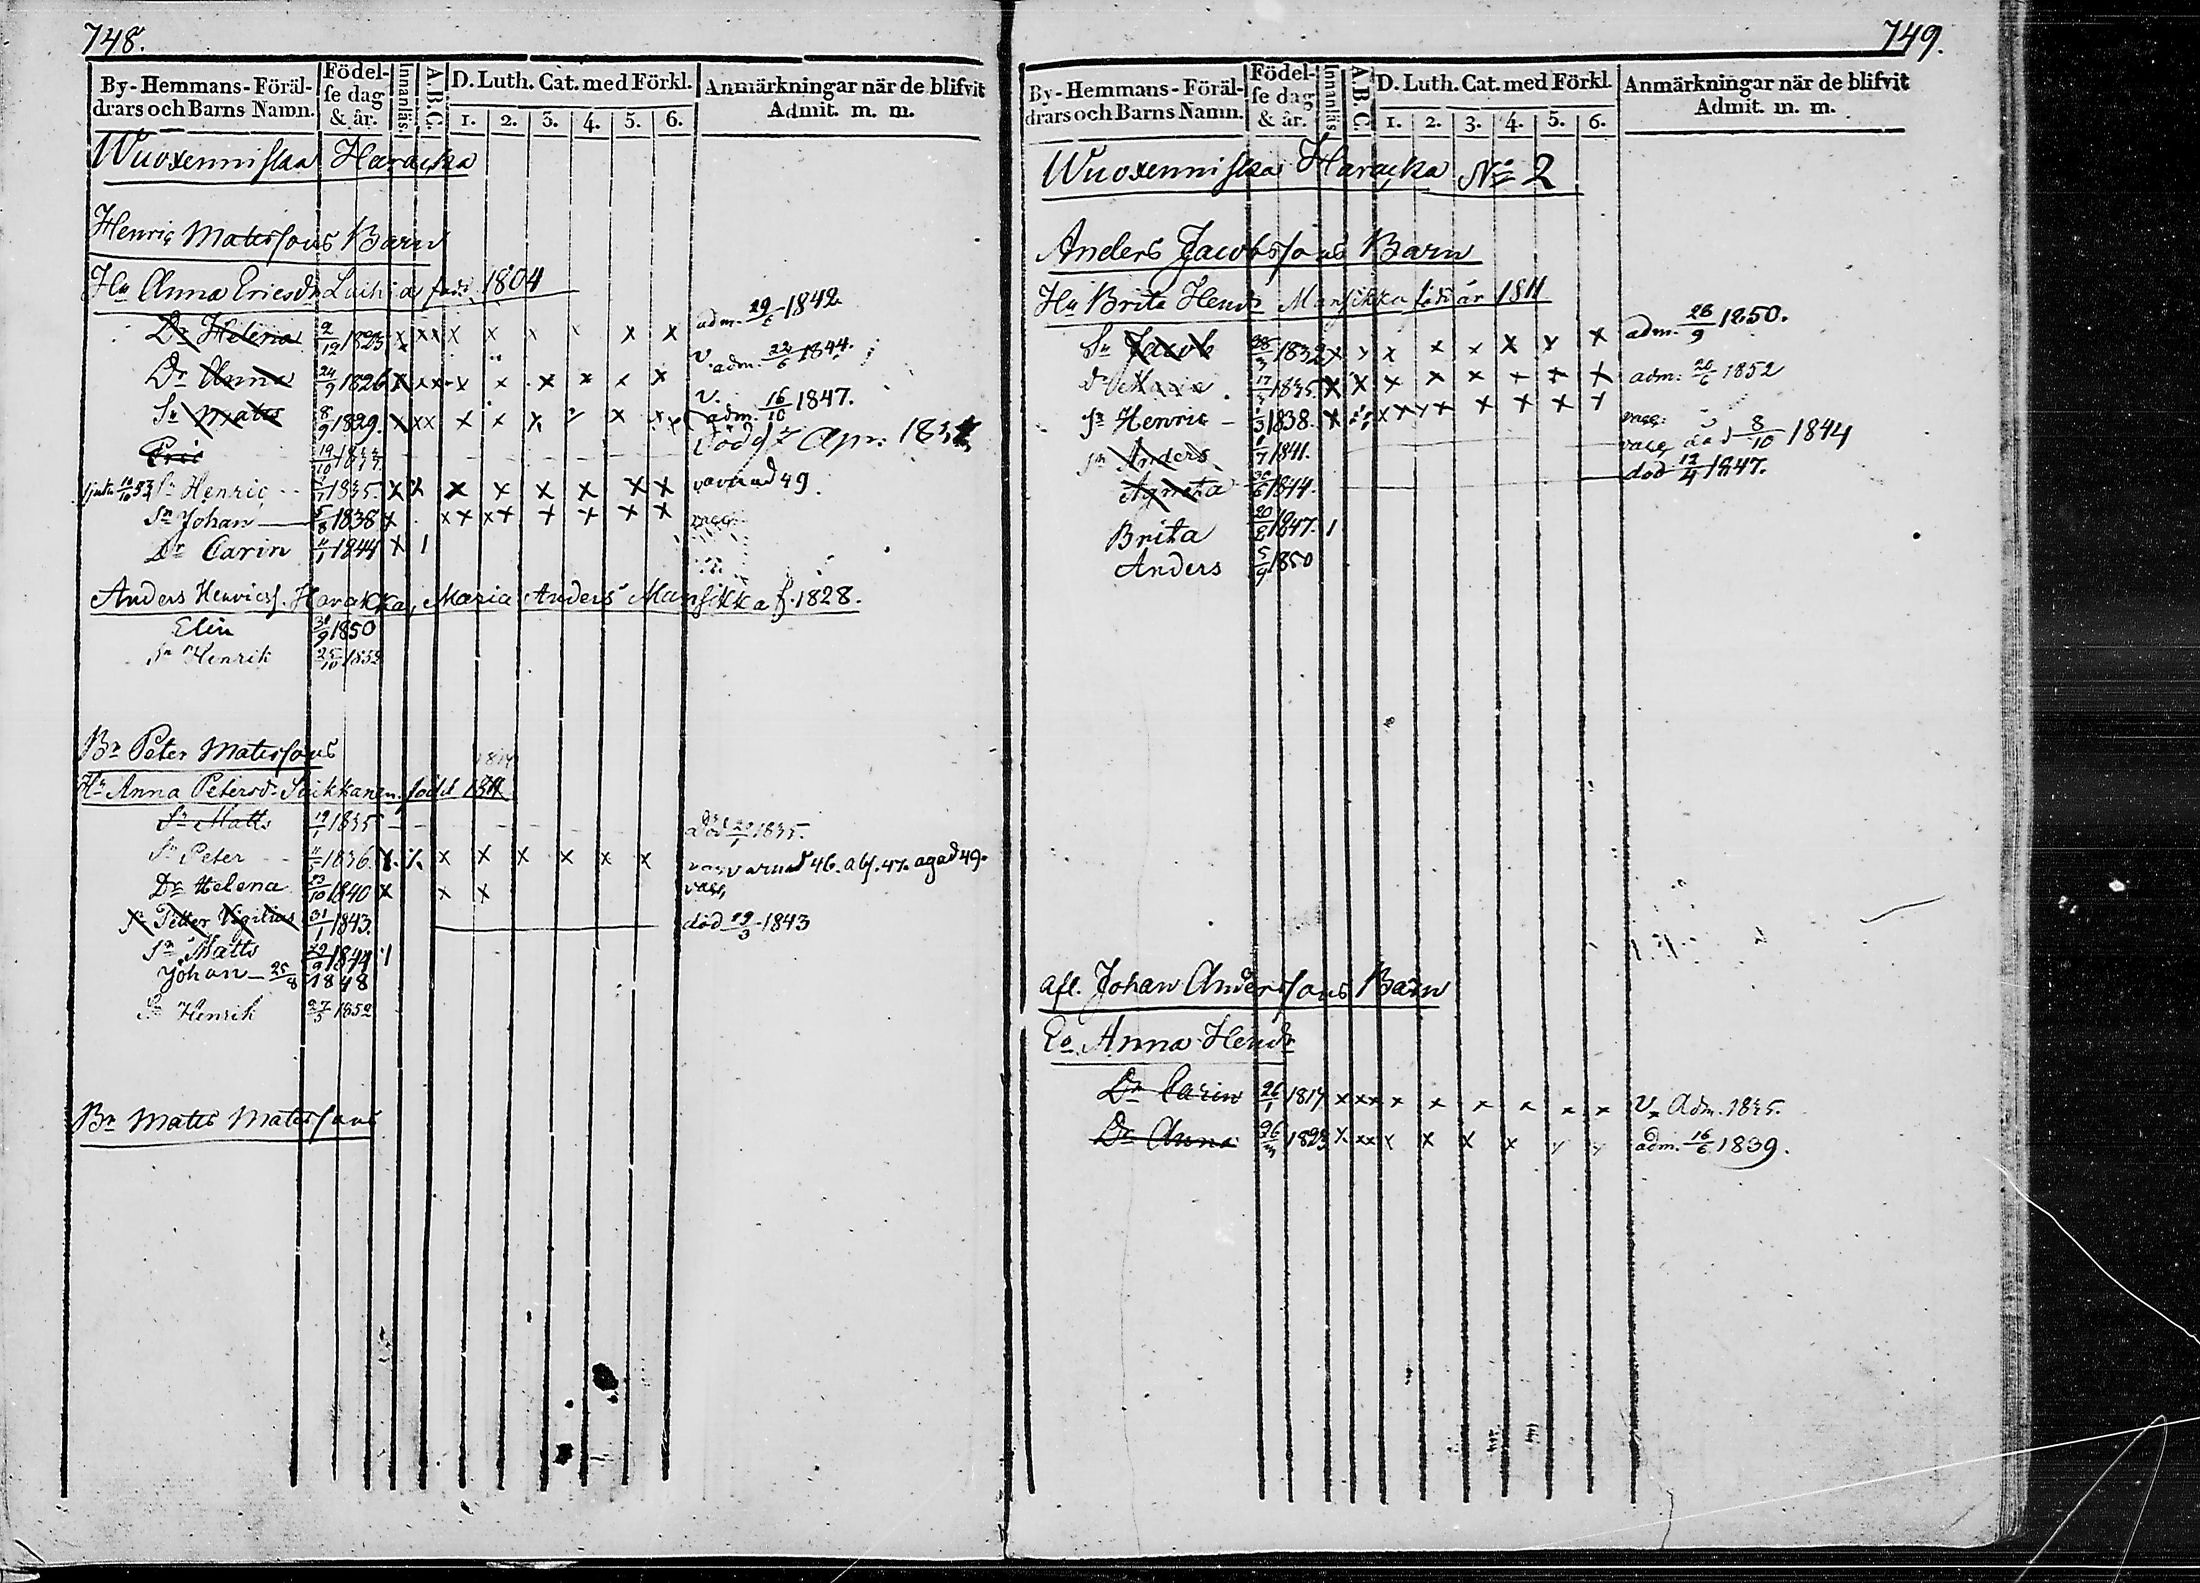 748.
By-Hemmans-Föräl-
drars och Barns Namn.
Födel-
se dag
& år.
Innanläs.
A.B.C.
D. Luth. Cat. med Förkl.
1. 2. 3. 4. 5. 6.
Anmärkningar när de blifvit
Admit. m. m.
Wuoxenniska Haracka
Henric Matssons Barn
Hu Anna Ericsdr Laihia född 1804
Dr Helena 2/12 1823 x xx x x x x x x adm. 29/6 1842
Dr Anna 24/9 1826 x xx x x x x x x v. adm. 23/6 1844.
Sn Matts 8/9 1829. x xx x x x x x v. adm. 16/10 1847.
Eric 19/10 1833 Död Apr. 1834
Sn Henric 1835. x x x x x x x x 49.
Sn Johan 5/8 1838 x x x x x x x x x vacc.
Dr Carin 4/1 1844 x 1
Anders Henricss. Harakka, Maria Anders Mansikka f. 1828.
Elin 30/9 1850
Sn Henrik 25/10 1852
Br Peter Matssons
Hu Anna Petersdr född
Sn Matts 19/1 1835 död 1835.
Sn Peter 1836. x x x x x x x x 46. 47. agad 49.
Dr Helena 23/10 1840 x x x vacc.
Sn Petter Vigilius 31/1 1843. död 19/3 1843
Sn Matts 29/9 1844 1
Johan 25/8 1848
Sn Henrik 27/5 1852
Br Matts Matssons
749.
By-Hemmans-Föräl-
drars och Barns Namn.
Födel-
se dag
& år.
Innanläs.
A.B.C.
D. Luth. Cat. med Förkl.
1. 2. 3. 4. 5. 6.
Anmärkningar när de blifvit
Admit. m. m.
Wuoxenniska Haracka No 2
Anders Jacobssons Barn
Hu Brita Hendr Mansikka född år 1811
Sn Jacob 28/3 1832 x x x x x x x x adm. 26/9 1850.
Dr 1835 x x x x x x x x adm. 20/6 1852
Sn Henric 1838. x x x x x x x x vacc.
Sn Anders 1/7 1841. vacc. död 8/10 1844
Agneta 1844. död 12/4 1847.
Brita 20/2 1847. 1
Anders 5/9 1850
Afl. Johan Anderssons Barn
Ea Anna Hendr
Dr Carin 26/1 1817 x xx x x x x x x v. Adm. 1835.
Dr Anna 26/3 1823 x xx x x x x x x adm. 16/6 1839.